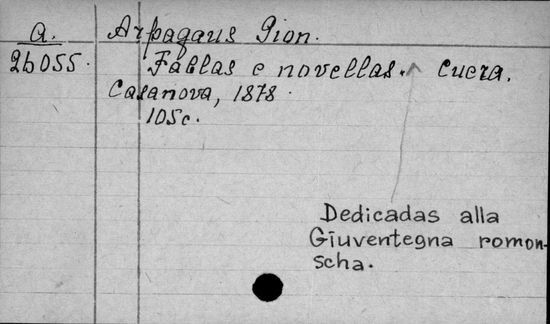 a.
Arpagaus Gion.
26055.
Fablas e novellas. Cuera.
Casanova, 1878.
105c.
Dedicadas alla
Giuventegna romon-
scha.